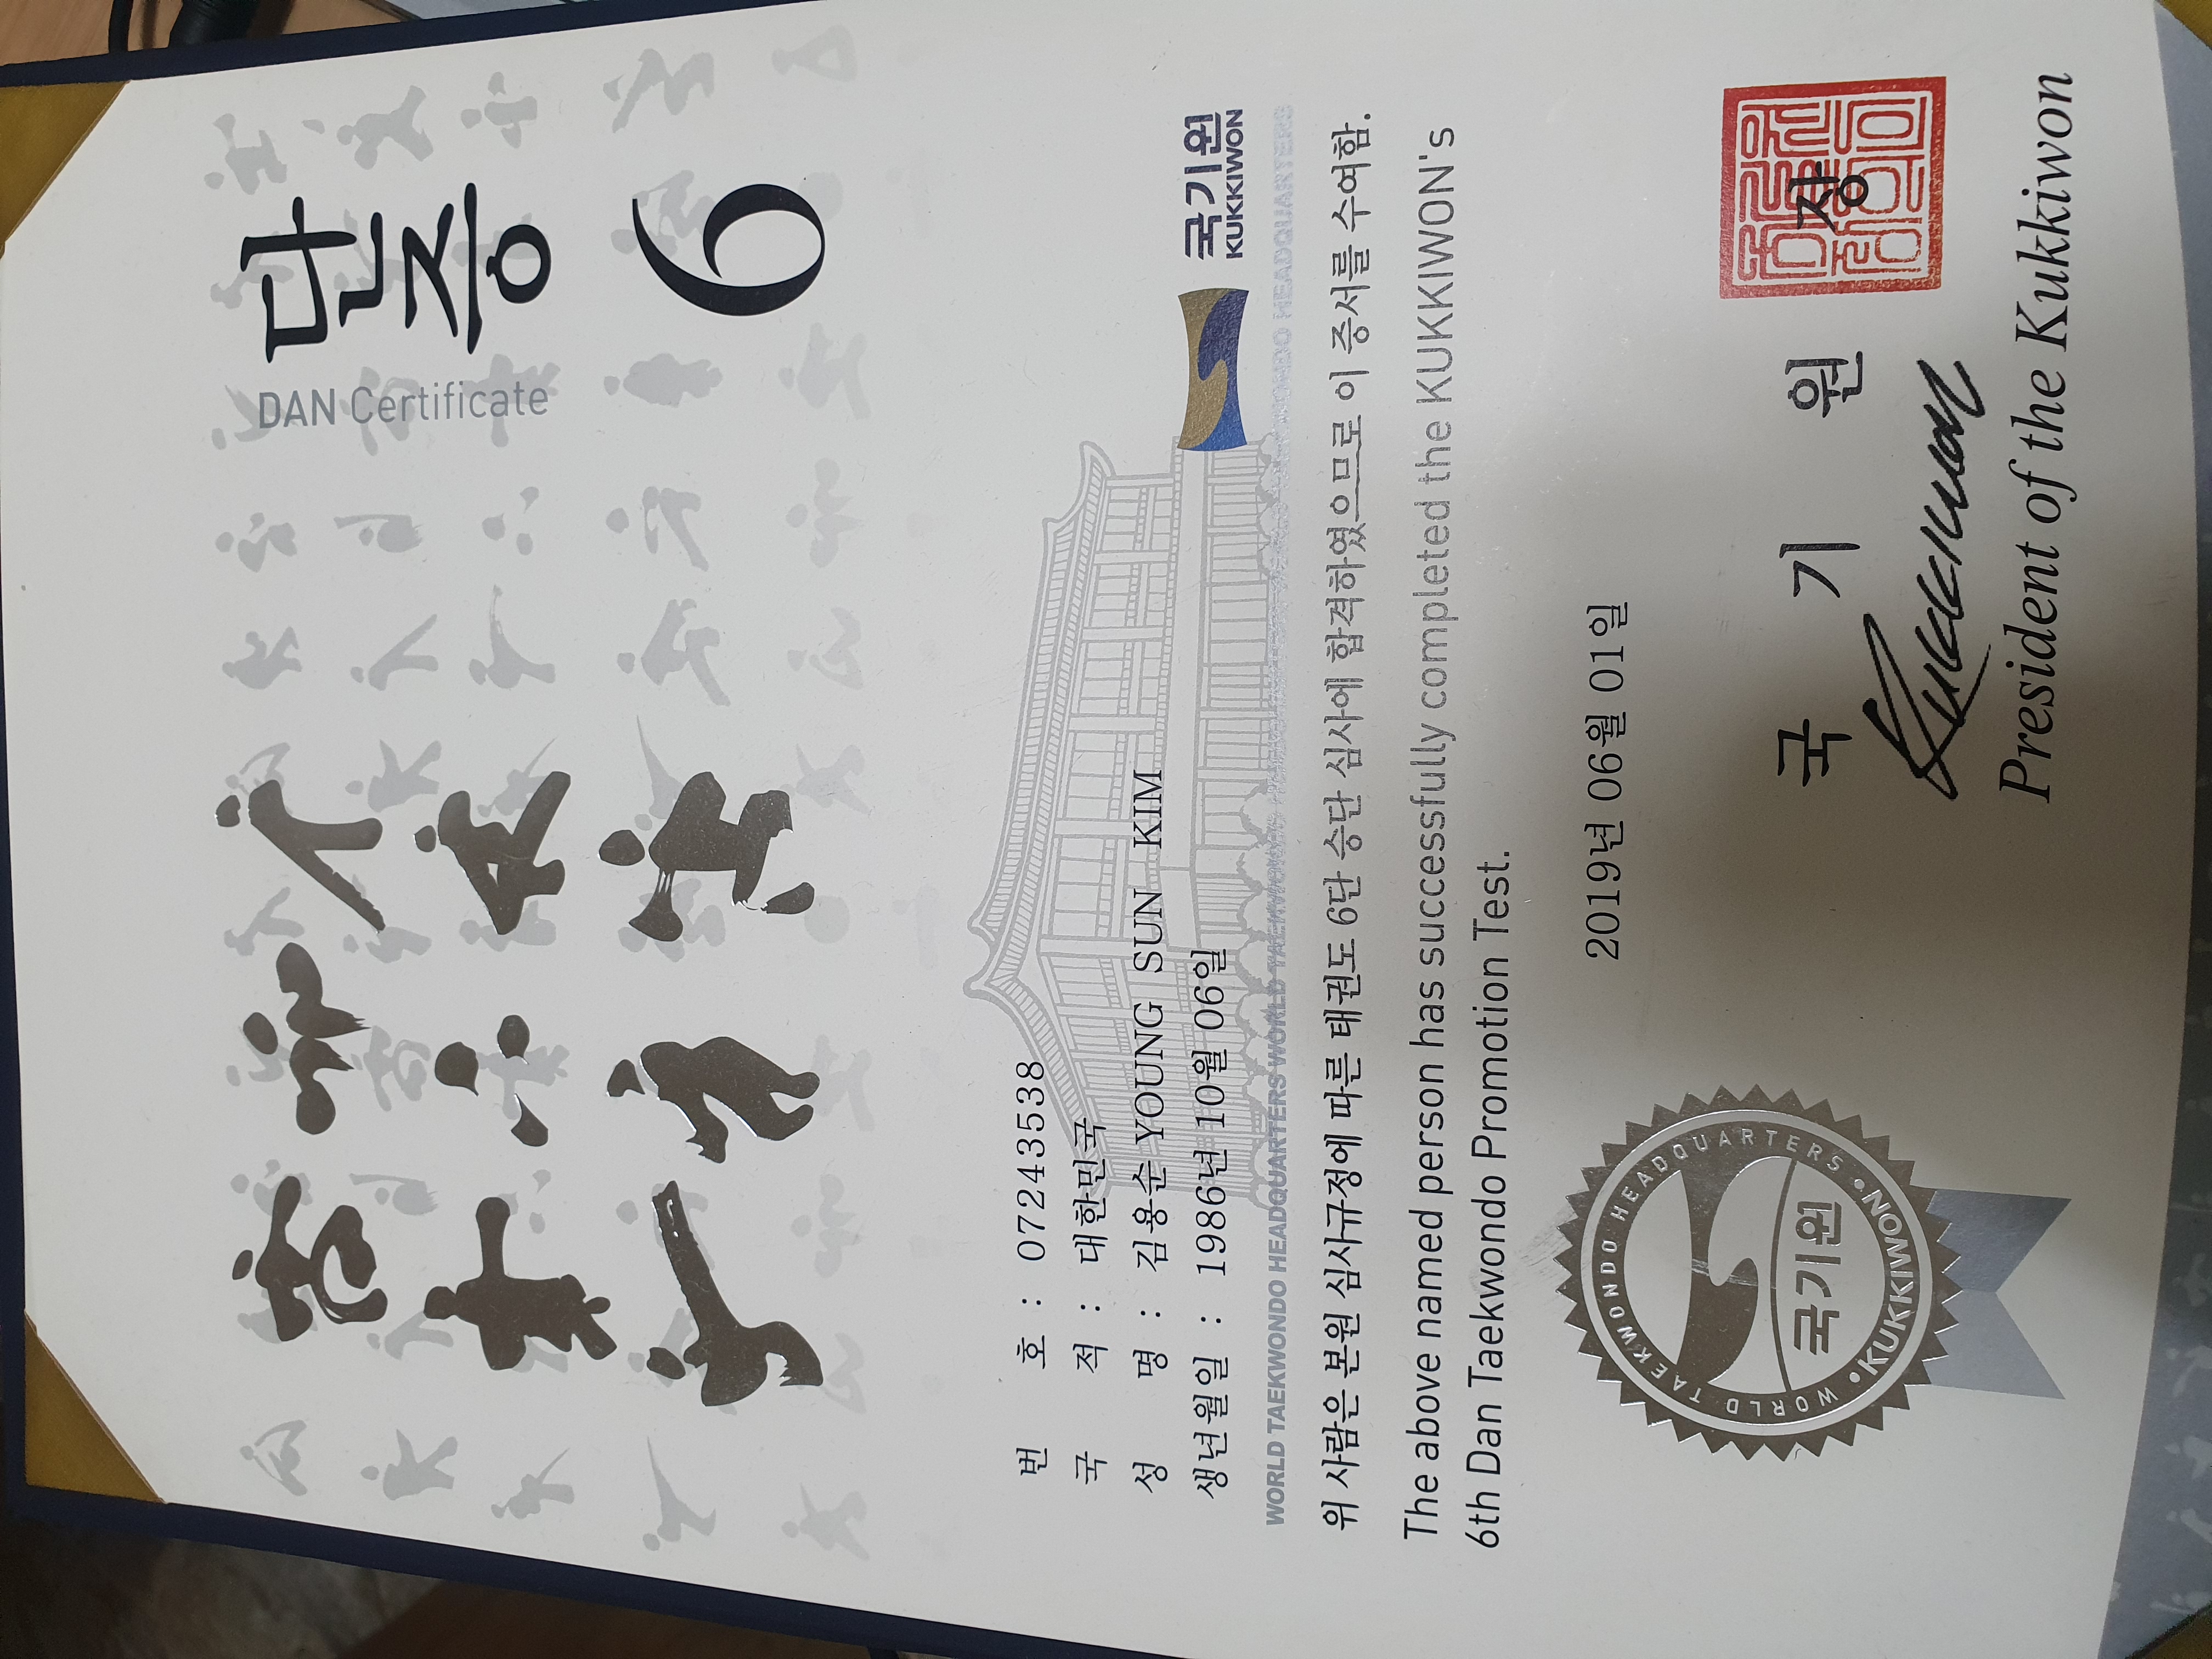 단증
DAN Certificate
6
번 호 : 07243538
국 적 : 대한민국
성 명 : 김용순 YOUNG SUN KIM
생년월일 : 1986년 10월 06일
국기원
KUKKIWON
WORLD TAEKWONDO HEADQUARTERS WORLD TAEKWONDO HEADQUARTERS WORLD TAEKWONDO HEADQUARTERS
위 사람은 본원 심사규정에 따른 태권도 6단 승단 심사에 합격하였으므로 이 증서를 수여함.
The above named person has successfully completed the KUKKIWON's
6th Dan Taekwondo Promotion Test.
2019년 06월 01일
WORLD TAEKWONDO HEADQUARTERS
국기원
• KUKKIWON •
국 기 원 장
President of the Kukkiwon